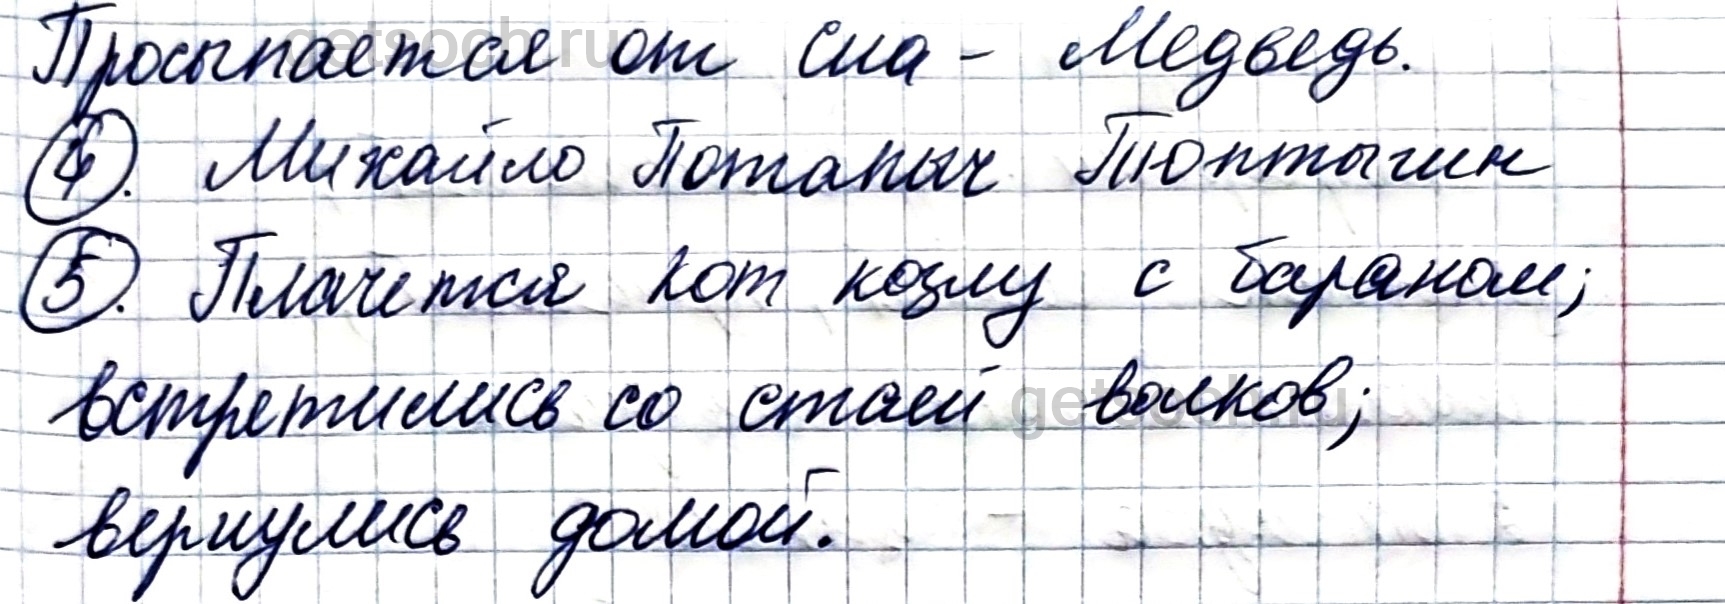 Просыпается от сна - Медведь.
4. Михайло Потапыч Топтыгин
5. Плачется кот козлу с бараном;
встретились со стаей волков;
вернулись домой.
getsoch.ru
getsoch.ru